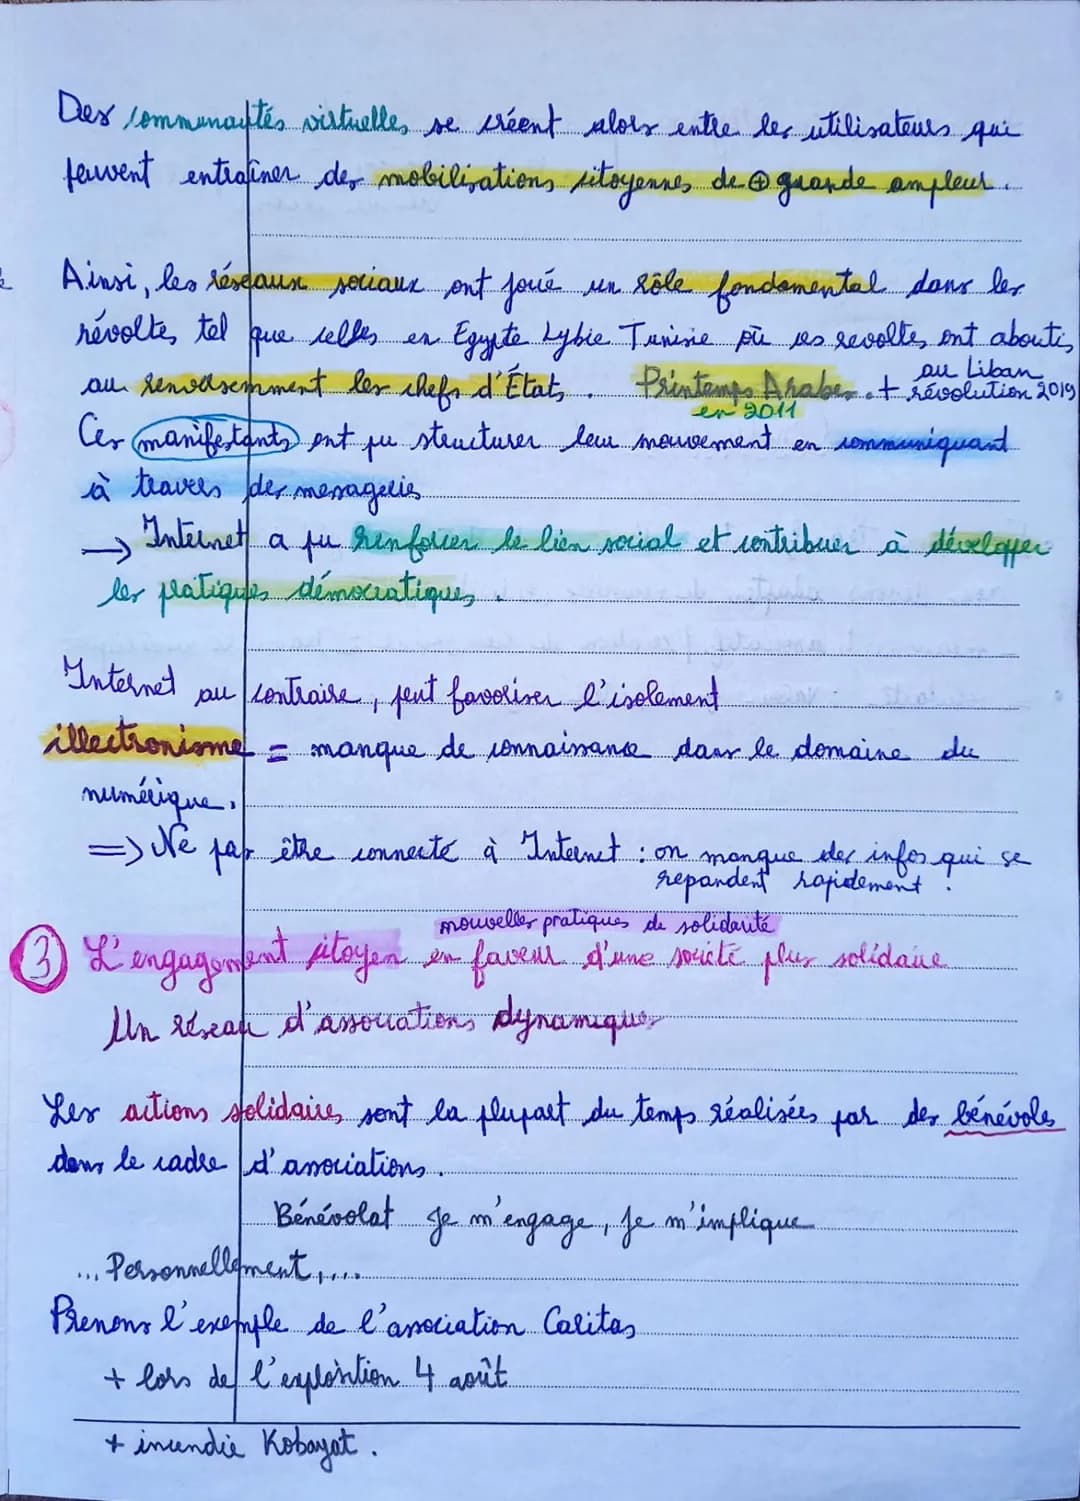 Des communautés virtuelles se créent alors entre les utilisateurs qui
peuvent entraîner des mobilisations citoyennes de ⊕ grande ampleur.
Ainsi, les réseaux sociaux ont joué un rôle fondamental dans les
révoltes tel que celles en Egypte Lybie Tunisie où ses revoltes ont abouti
au Liban
au renversemment les chefs d'États. Printemps Arabes. + révolution 2019
en 2011
Ces manifestants ont pu structurer leur mouvement en communiquant
à travers des messageries
→ Internet a pu renforcer le lien social et contribuer à développer
les pratiques démocratiques.
Internet au contraire, peut favoriser l'isolement
illectronisme = manque de connaissance dans le domaine du
numérique.
=> Ne pas être connecté à Internet : on manque des infos qui se
repandent rapidement.
nouvelles pratiques de solidarité
3 L'engagement citoyen en faveur d'une société plus solidaire
Un réseau d'associations dynamiques
Les actions solidaires sont la plupart du temps réalisées par des bénévoles
dans le cadre d'associations.
Bénévolat Je m'engage, je m'implique
... Personnellement,....
Prenons l'exemple de l'association Caritas
+ lors de l'explosition 4 août
+ incendie Kobayat.